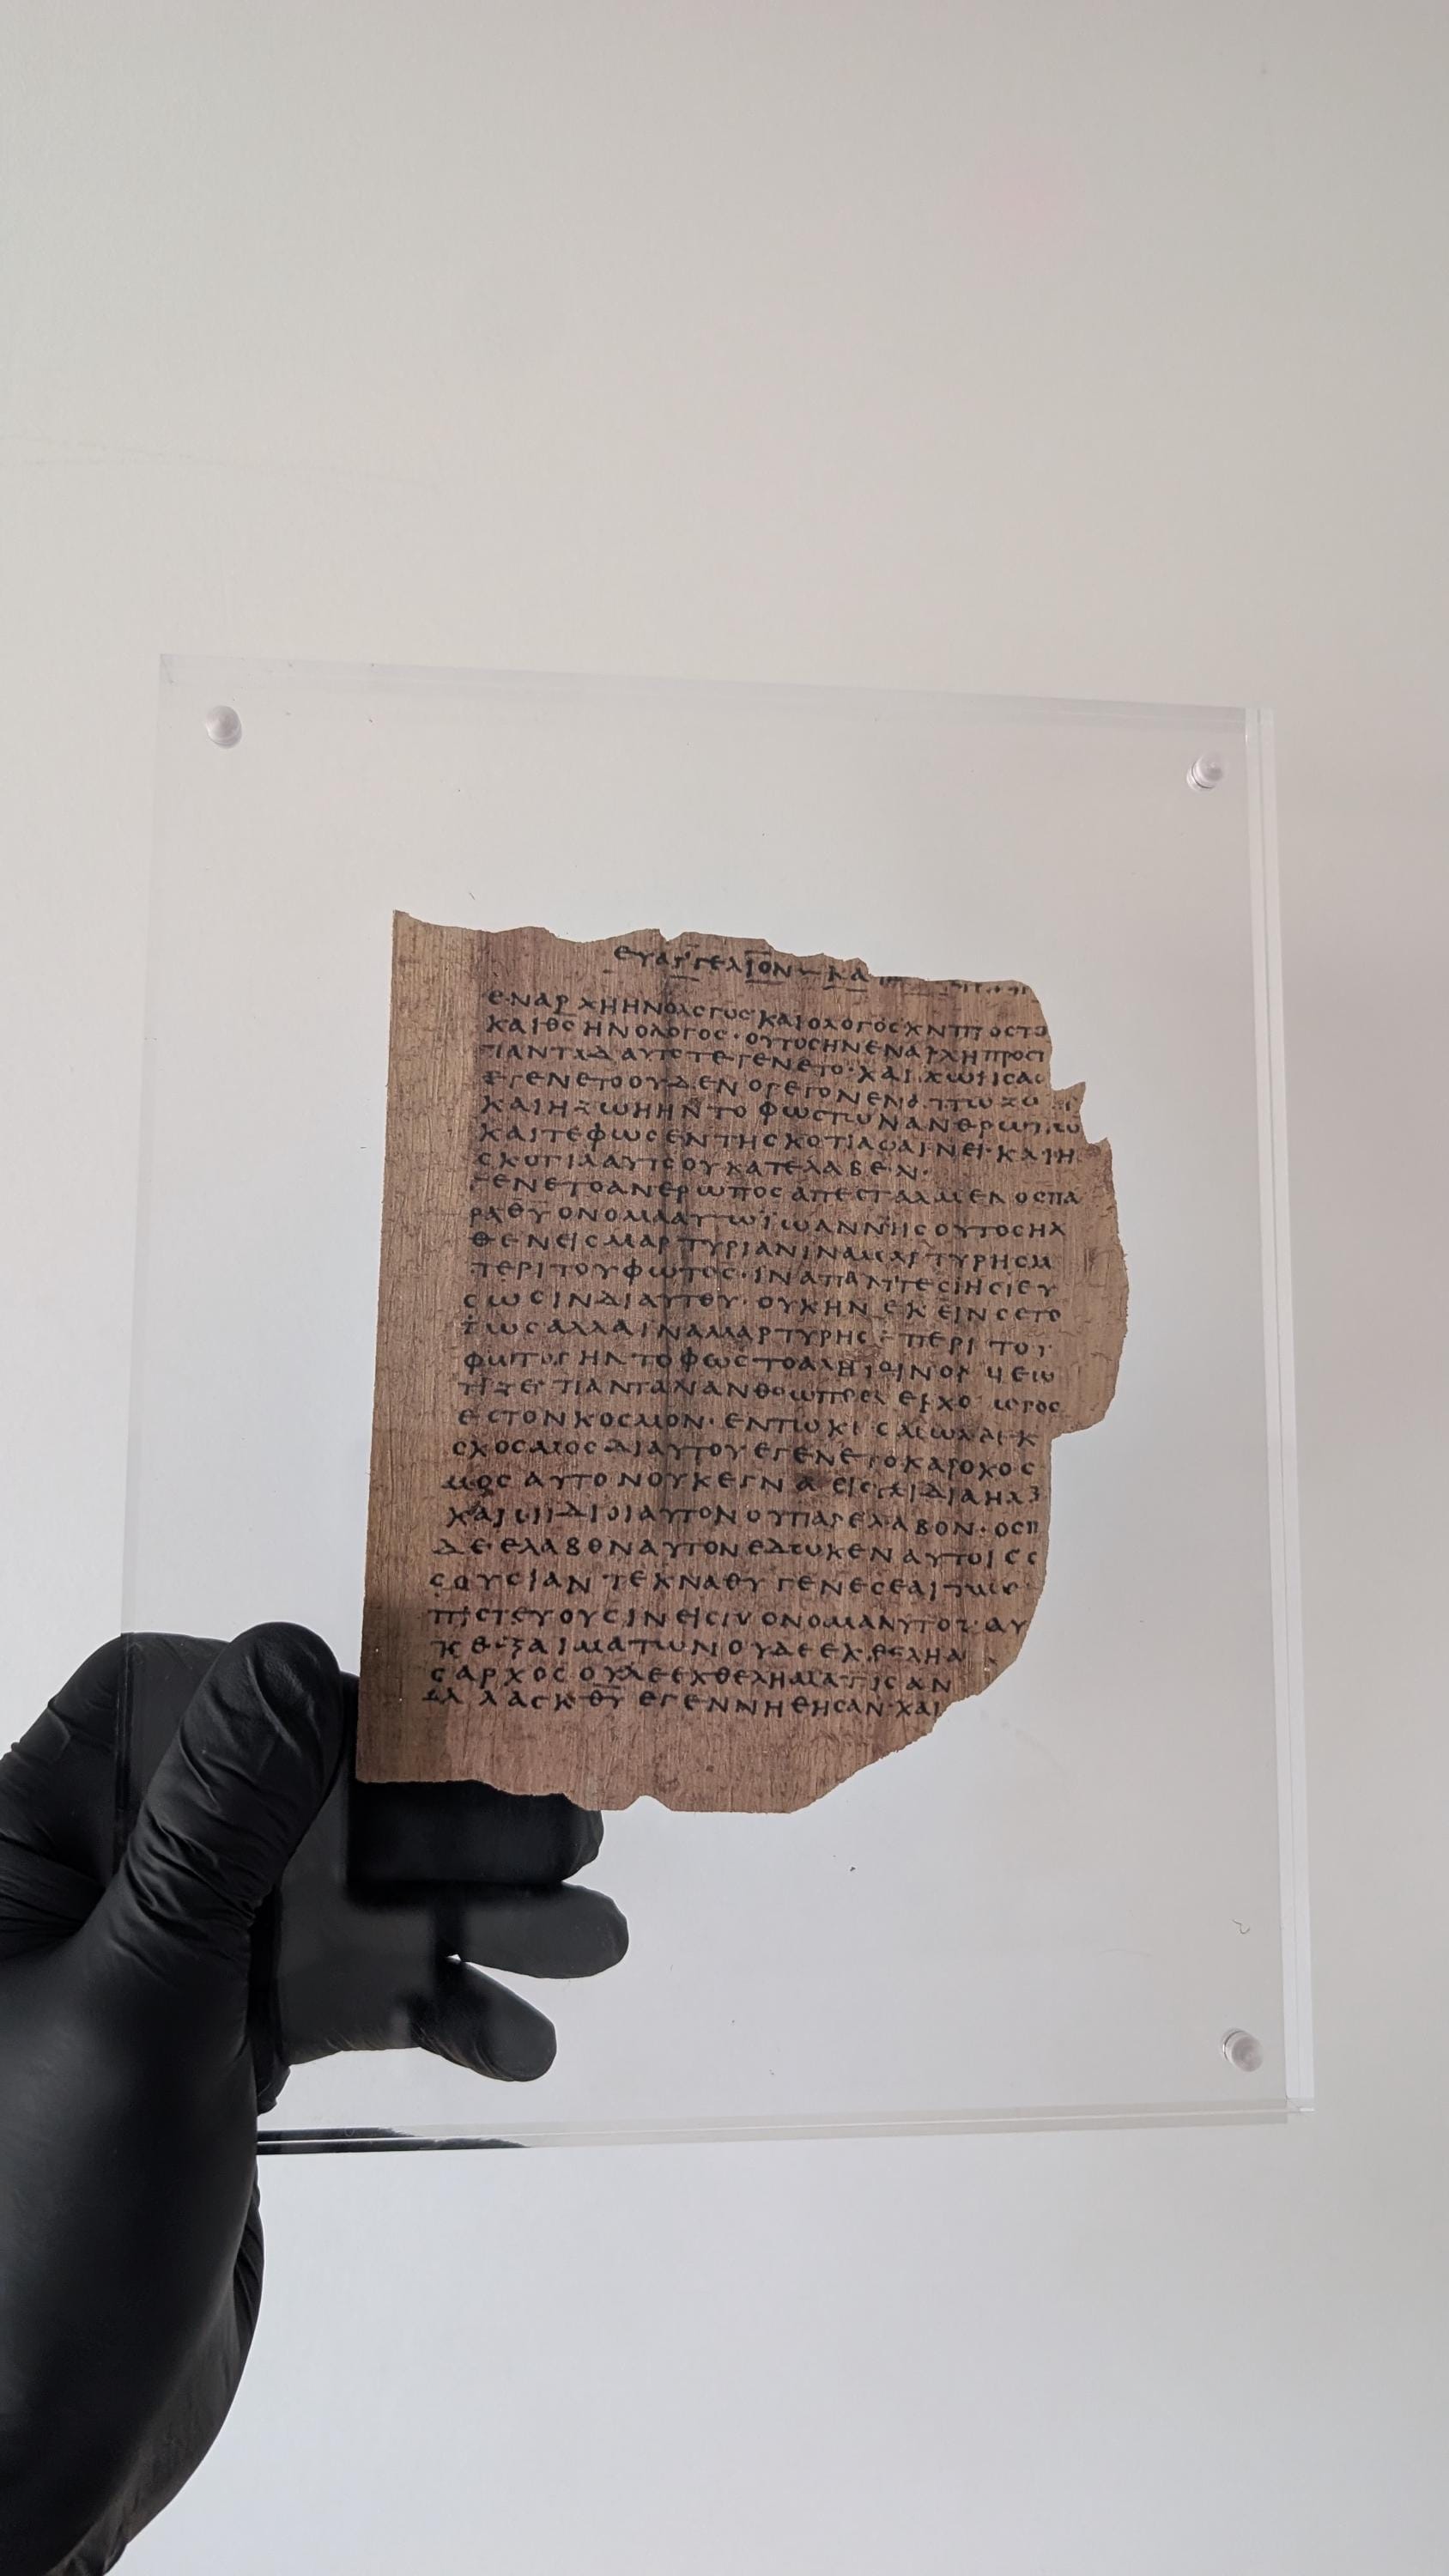 ευαγγελιον κα
εναρχηηνολογος καιολογοςχνπροστο
καιθς ηνολογος· ουτοςηνεναρχηπροστ
πανταδ αυτοτεγενετο· χαι χωρισα
εγενετοουδεν ογεγονενθ.ττωζω
καιηζωηηντο φωςτωνανθρωπ
καιτεφωςεντηςκοτιαφαινει·καιη
σκοτιααυτοουκατελαβεν·
γενετοανερωποςαπεσταλμενοσπα
ραθυονομααυτωϊωαννηςουτοςηχ
θενειςμαρτυριανιναμαρτυρηςμ
περιτουφωτος·ιναπαντεςιηςιευ
ςωςινδιαυτου·ουκηνεκεινςετο
φωςαλλαιναμαρτυρης περιτου
ηντοφωςτοαλη
ειςτονκοςμον·εντωκ
ςχοςμοςδιαυτουεγενετοκαιοχος
μοςαυτονουκεγν
αυτονουπαρελαβον·οςπ
δεελαβοναυτονεδωκεναυτοιςς
ςουςιαντεχναθυγενεςεαι
πιστευουςινειςιν ονομααυτου· αυ
αιματωνουδεεχθεληα
ςαρχοςουλεεχθεληματιςαν
αλλαςκθυεγεννηεηςαν·χαι